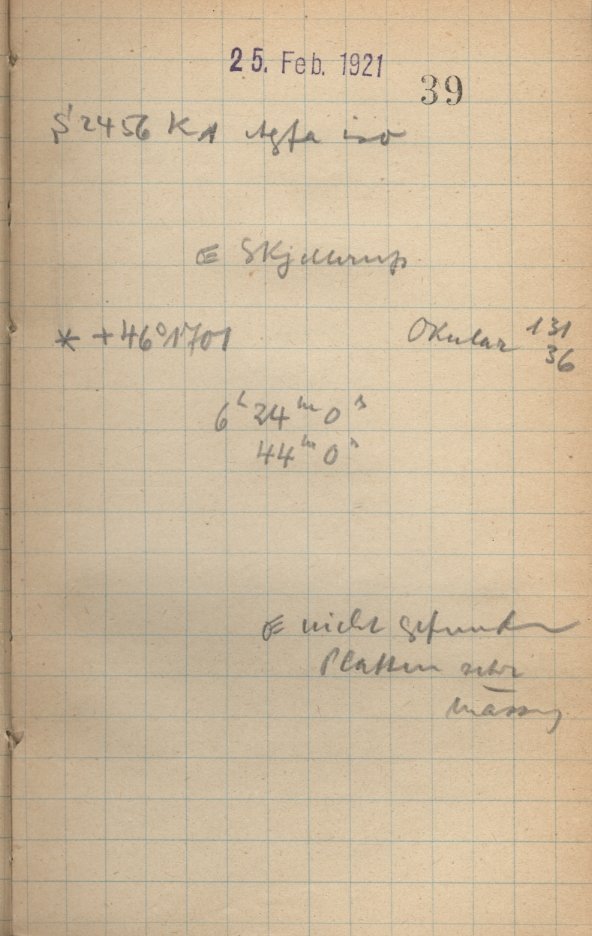 25. Feb. 1921
39
S 2456 KA Agfa iso
☄ Skjellerup
* +46°1701 Okular 131
36
6h 24m 0s
44m 0s
☄ nicht gefunden
Platten sehr
mässig